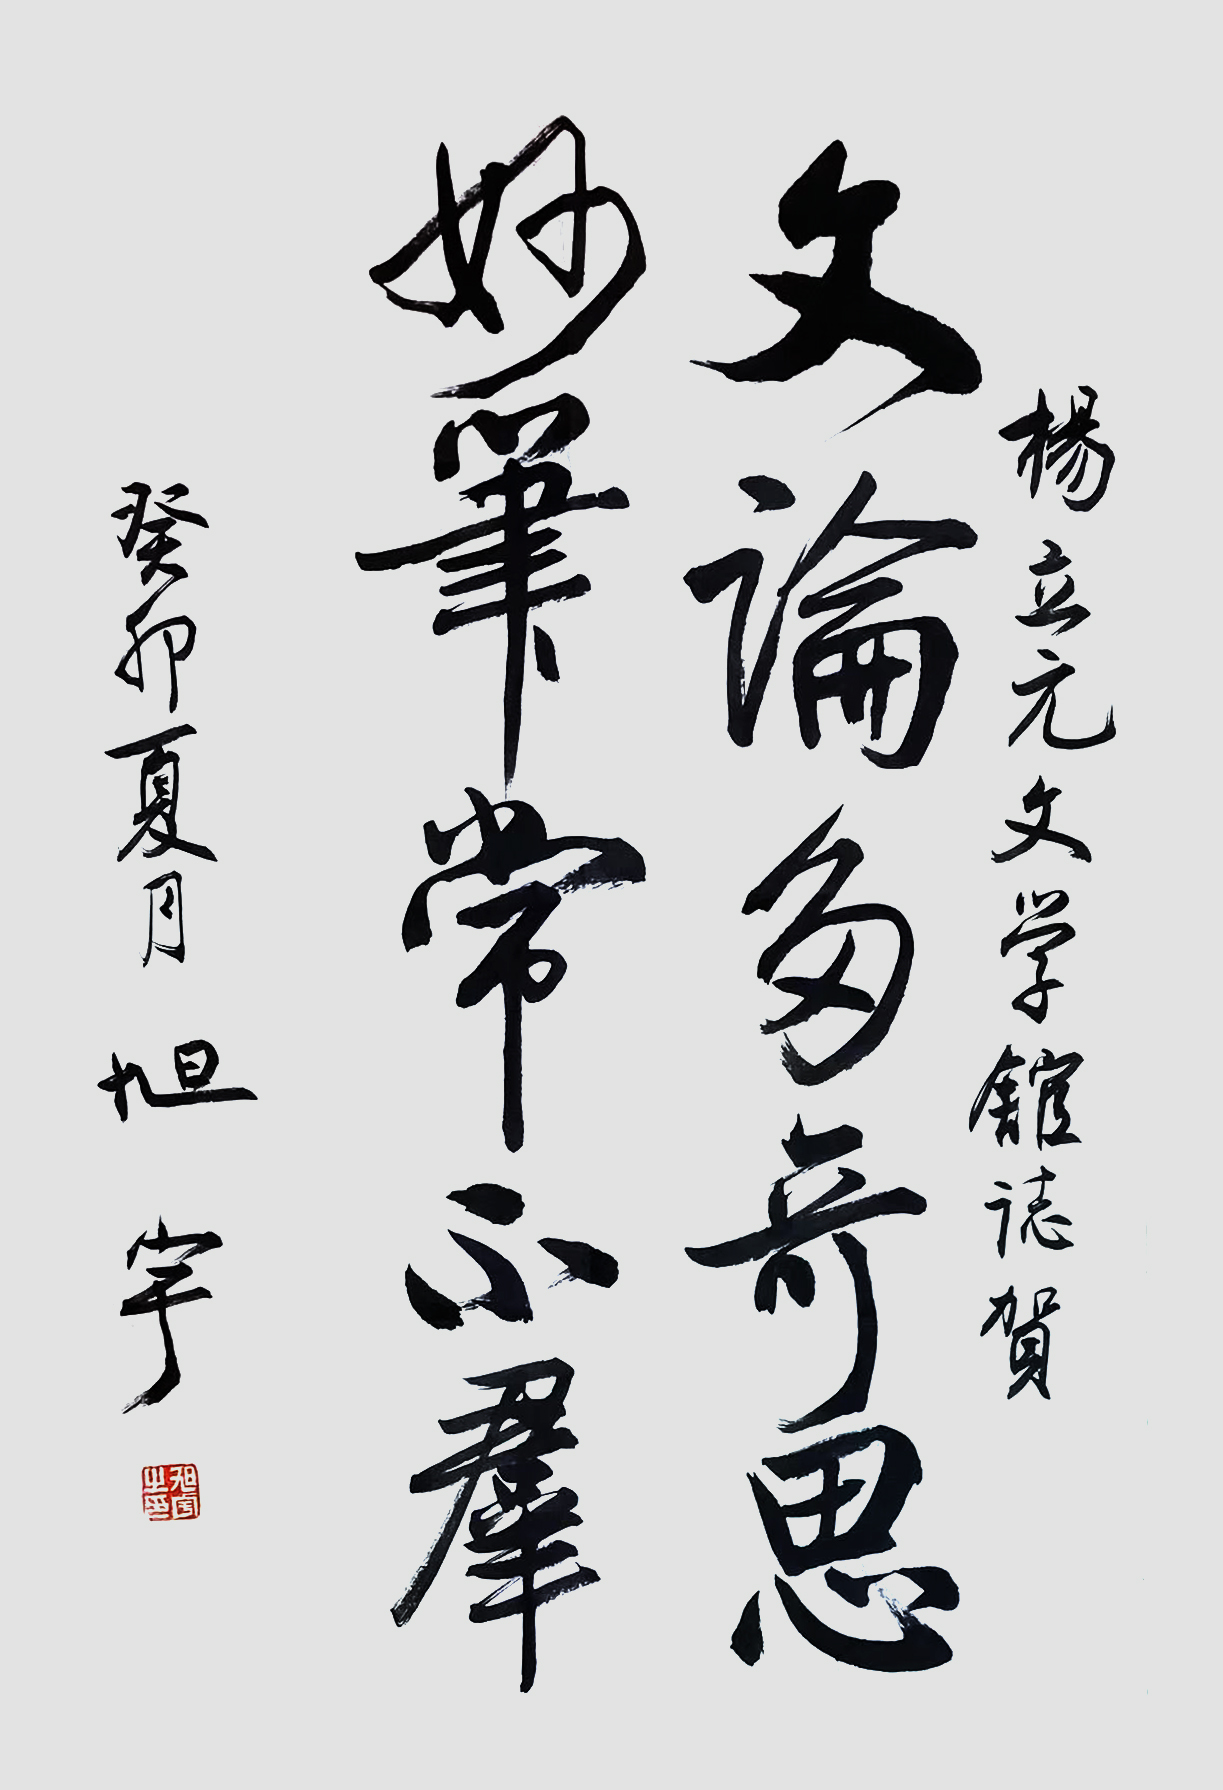 楊立元文学館誌賀
文論多奇思
妙筆常不羣
癸卯夏月
旭宇
旭宇之印